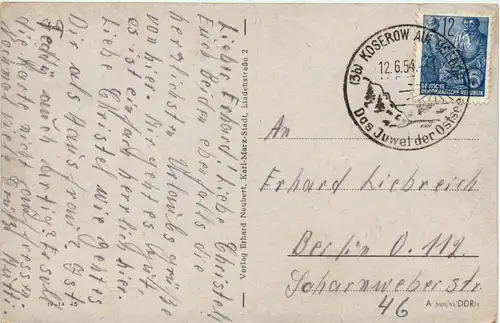 Lieber Erhard! Liebe Christel!
Euch Beiden ebenfalls die
herzlichsten Urlaubsgrüße
von hier. Mir geht es gut
es ist einfach herrlich hier.
Liebe Christel wie geht es
Dir als Hausfrau? Ist
auch artig? Er soll
die Karte nicht
Nochmal viele Grüße
Verlag Erhard Neubert, Karl-Marx-Stadt, Lindenstraße 2
IV-14-45
(3b) KOSEROW AUF USEDOM
12.6.54
Das Juwel der Ostsee
12
DEUTSCHE
DEMOKRATISCHE REPUBLIK
An
Erhard Liebreich
Berlin O. 112.
Scharnweberstr.
46